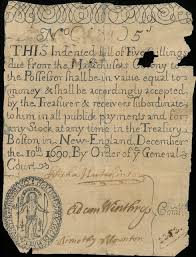 No 5s
THIS Indented Bill of Five Shillings
due from the Massachusets Colony to
the Possessor shall be in value equal to
money & shall be accordingly accepted
by the Treasurer & receivers subordinate
to him in all publick payments and for
any Stock at any time in the Treasury
Boston in New-England, December
the 10th 1690. By Order of ye General
Court
Adam Winthrop
Timothy Thornton